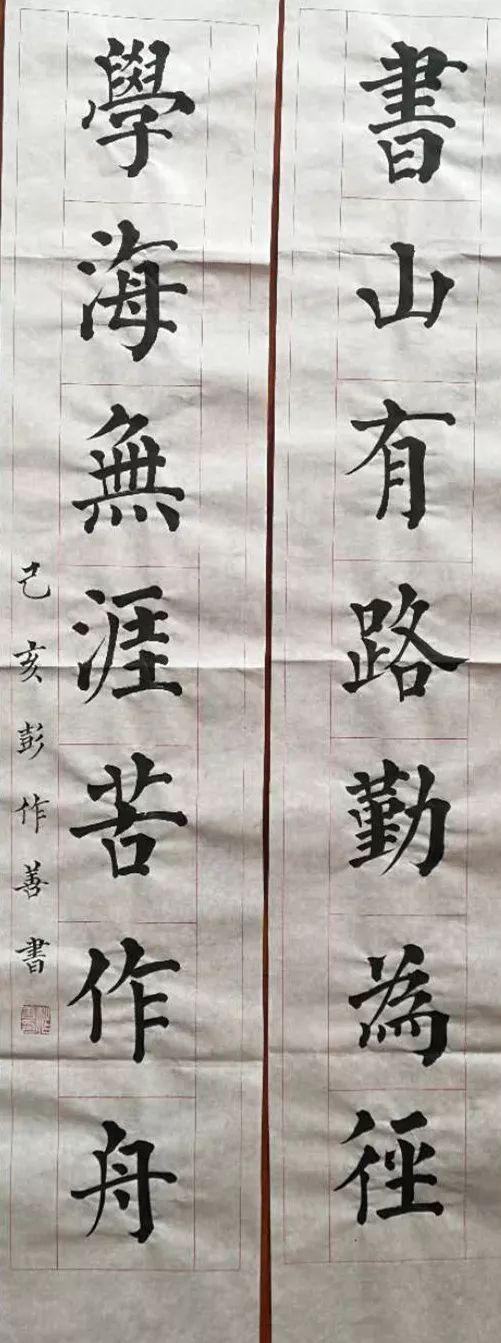 書山有路勤為徑
學海無涯苦作舟
己亥彭作善書